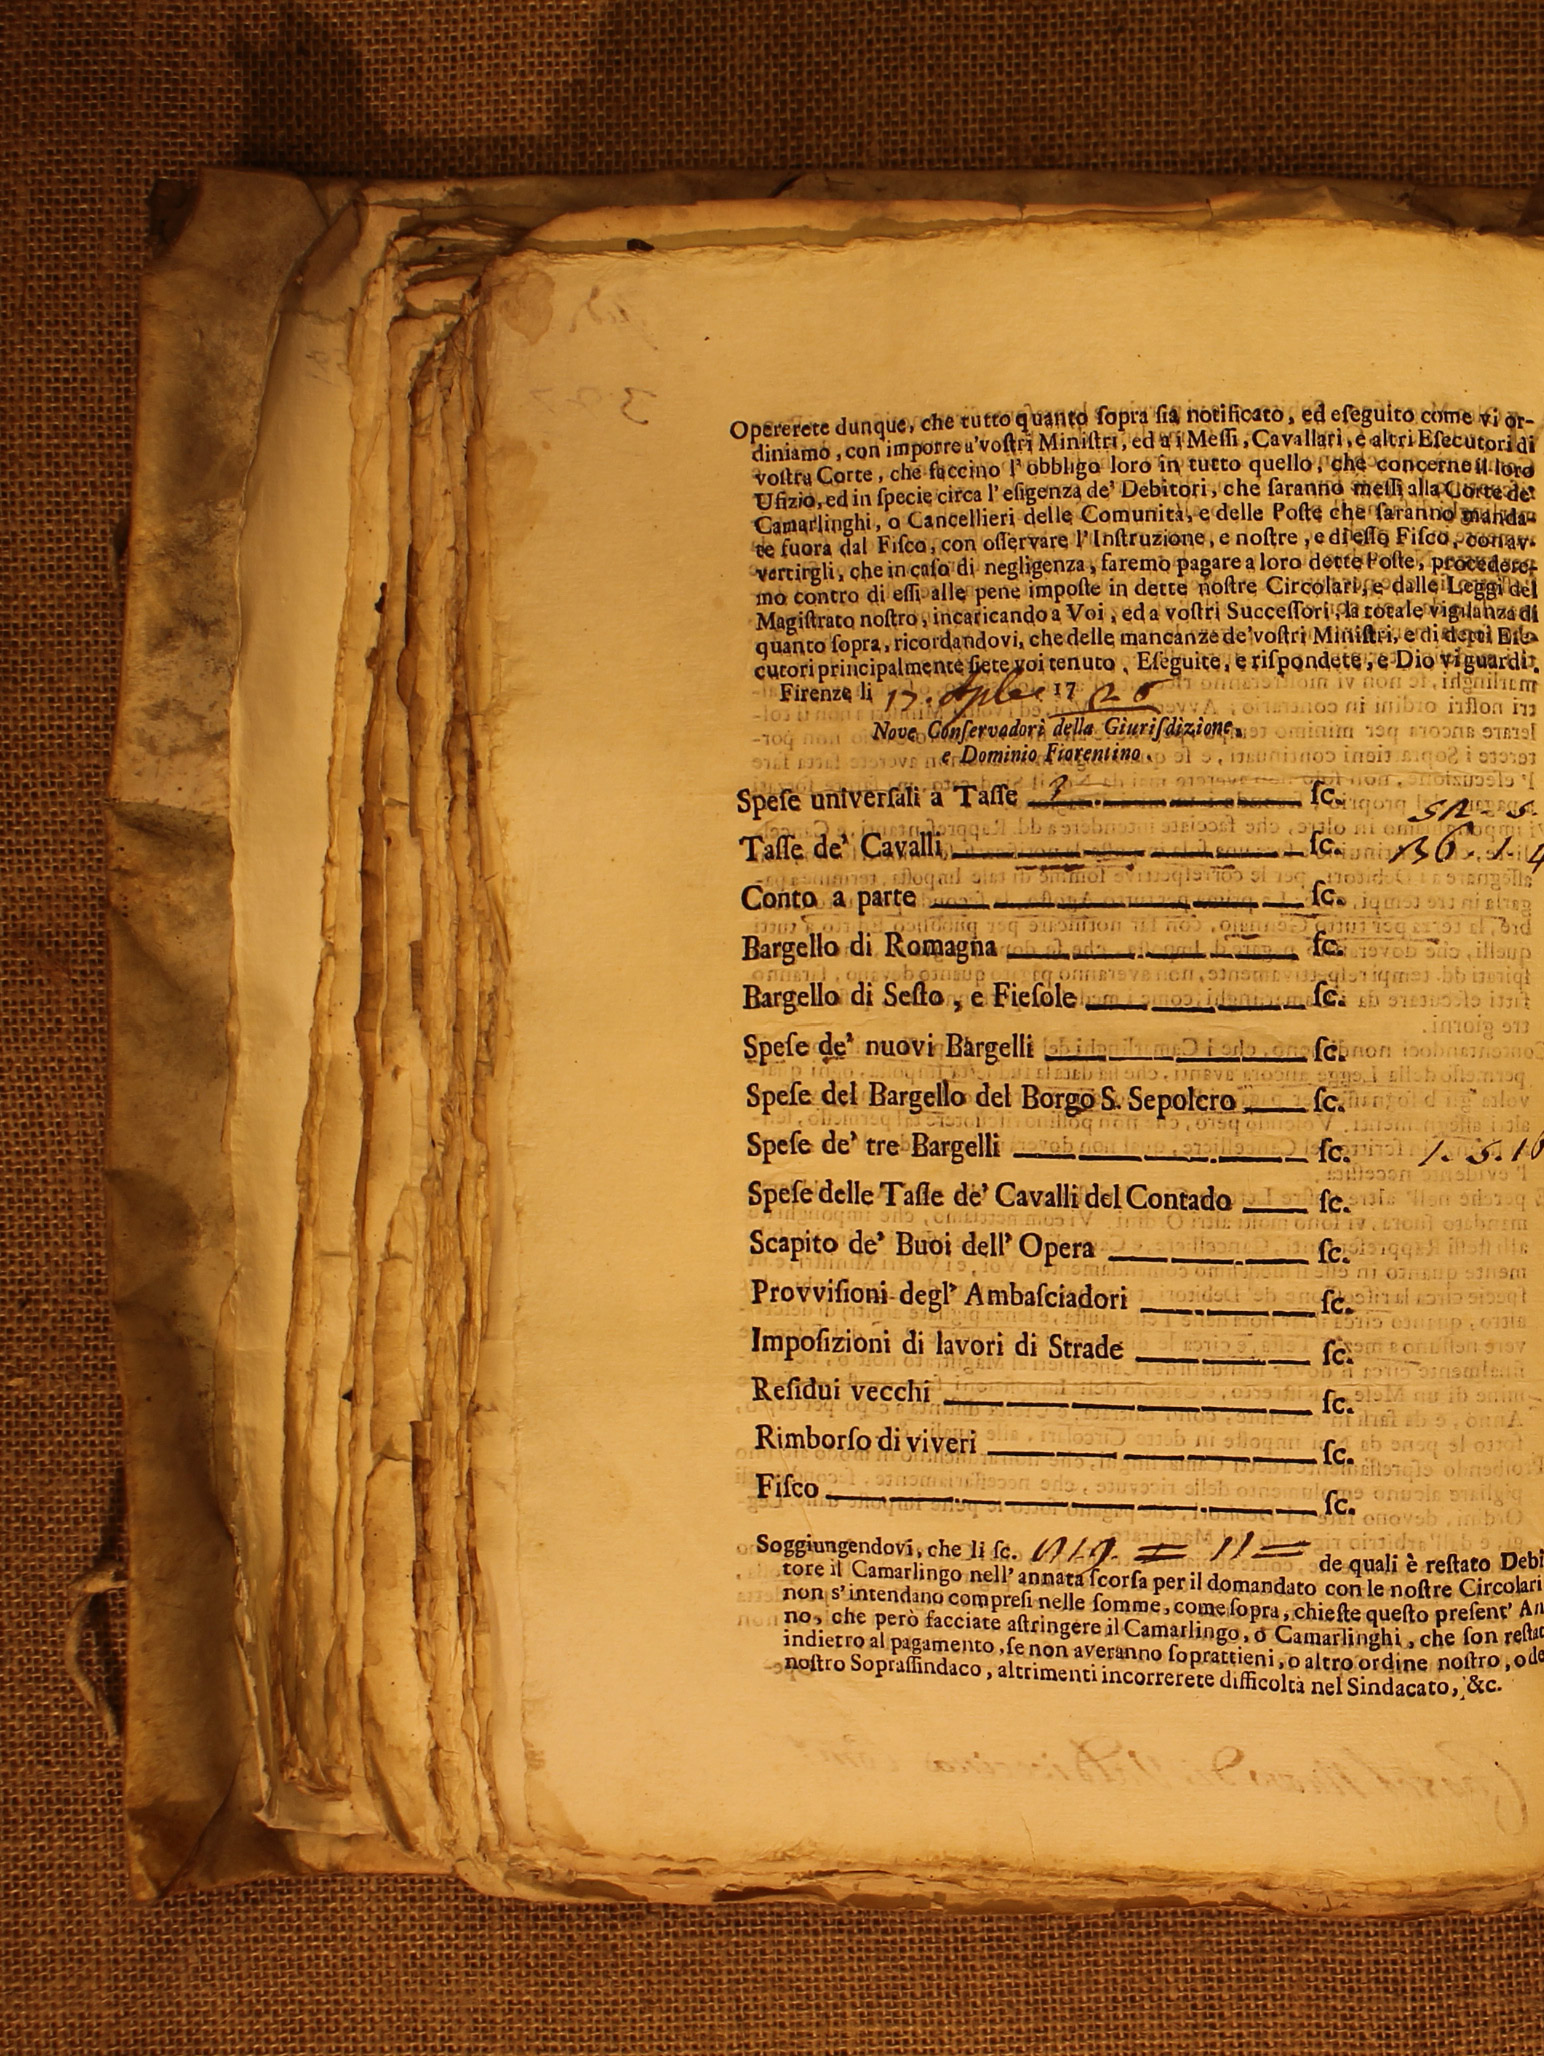 Opererete dunque, che tutto quanto ſopra ſia notificato, ed eſeguito come vi or-
diniamo, con imporre a'voſtri Miniſtri, ed a i Meſſi, Cavallari, e altri Eſecutori di
voſtra Corte, che faccino l'obbligo loro in tutto quello, che concerne il loro
Ufizio, ed in ſpecie circa l'eſigenza de' Debitori, che ſaranno meſſi alla Corte de'
Camarlinghi, o Cancellieri delle Comunità, e delle Poſte che ſaranno manda-
te fuora dal Fiſco, con oſſervare l'Inſtruzione, e noſtre, e di eſſo Fiſco, con av-
vertirgli, che in caſo di negligenza, faremo pagare a loro dette Poſte, procedere-
mo contro di eſſi alle pene impoſte in dette noſtre Circolari, e dalle Leggi del
Magiſtrato noſtro, incaricando a Voi, ed a voſtri Succeſſori, la totale vigilanza di
quanto ſopra, ricordandovi, che delle mancanze de'voſtri Miniſtri, e di detti Eſe-
cutori principalmente ſiete voi tenuto. Eſeguite, e riſpondete, e Dio vi guardi.
Firenze li 17. 17
Nove Conſervadori della Giuriſdizione,
e Dominio Fiorentino.
Speſe univerſali a Taſſe ſc.
Taſſe de' Cavalli ſc. 136. 1. 4
Conto a parte ſc.
Bargello di Romagna ſc.
Bargello di Seſto, e Fieſole ſc.
Speſe de' nuovi Bargelli ſc.
Speſe del Bargello del Borgo S. Sepolcro ſc.
Speſe de' tre Bargelli ſc. 1. 5. 16
Speſe delle Taſſe de' Cavalli del Contado ſc.
Scapito de' Buoi dell' Opera ſc.
Provviſioni degl' Ambaſciadori ſc.
Impoſizioni di lavori di Strade ſc.
Reſidui vecchi ſc.
Rimborſo di viveri ſc.
Fiſco ſc.
Soggiungendovi, che li ſc. de quali è reſtato Debi
tore il Camarlingo nell'annata ſcorſa per il domandato con le noſtre Circolari
non s'intendano compreſi nelle ſomme, come ſopra, chieſte queſto preſent' An
no, che però facciate aſtringere il Camarlingo, o Camarlinghi, che ſon reſtat
indietro al pagamento, ſe non averanno ſoprattieni, o altro ordine noſtro, o de
noſtro Sopraſſindaco, altrimenti incorrerete difficoltà nel Sindacato, &c.